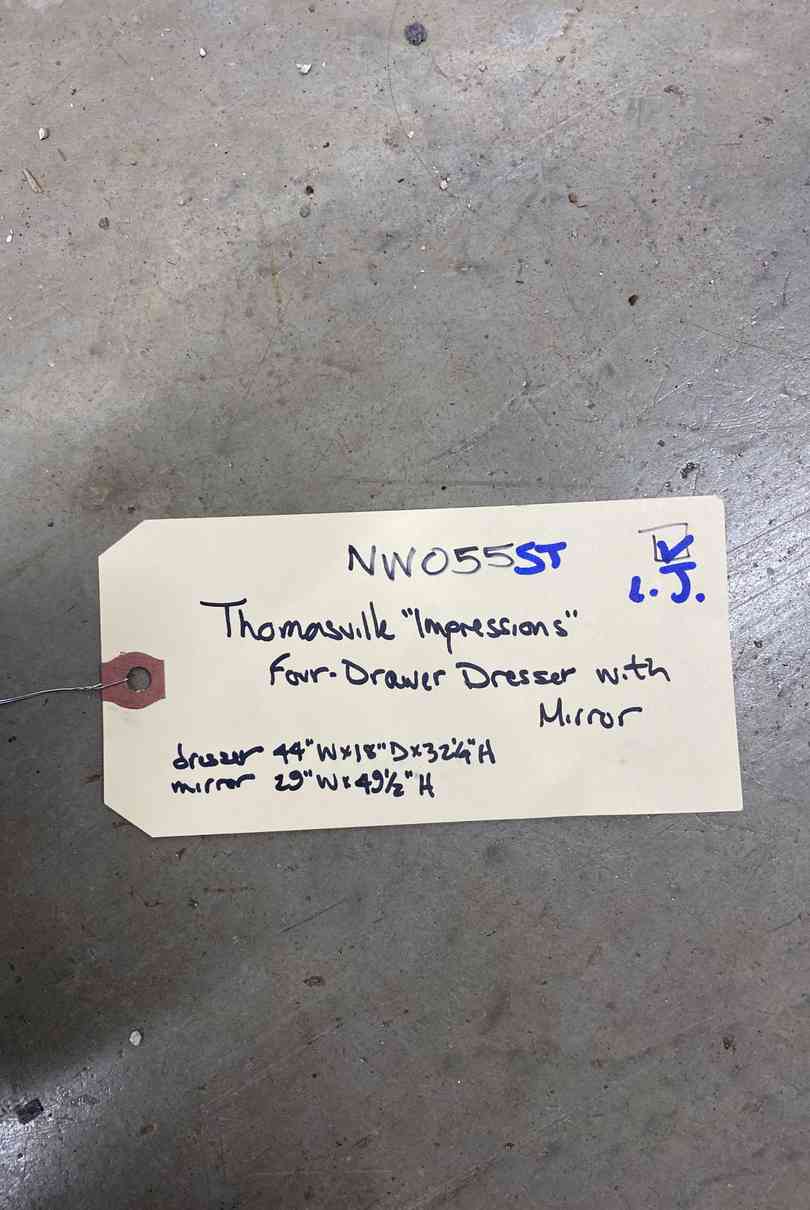 NW055ST
L.J.
Thomasville "Impressions"
Four-Drawer Dresser with
Mirror
dresser 44"W x 18"D x 32¼"H
mirror 29"W x 49½"H